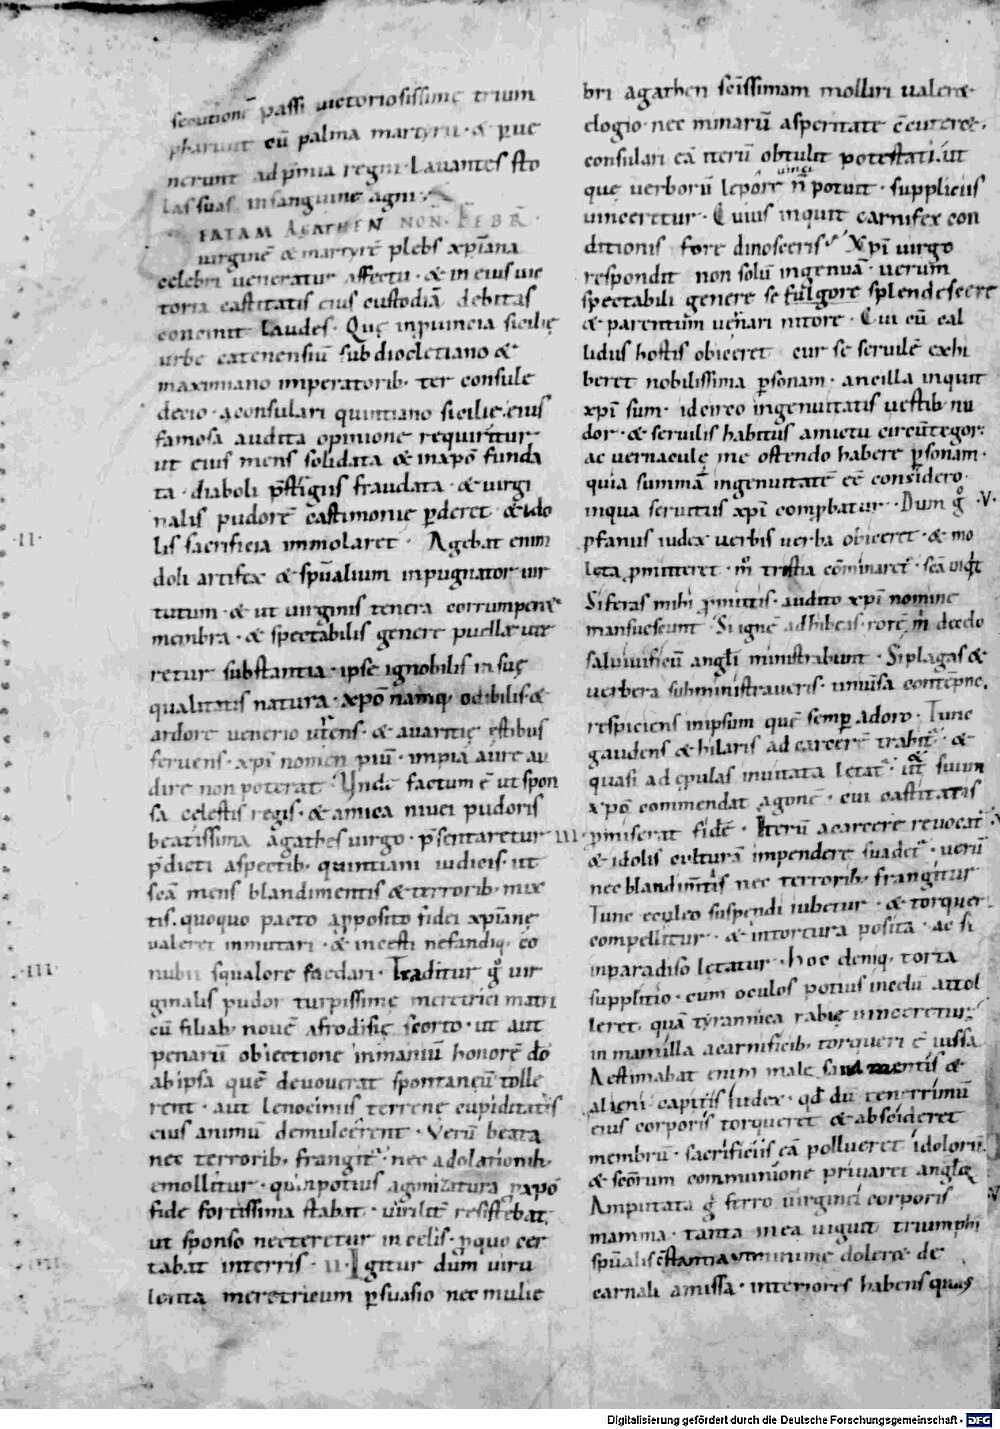 secutioni passi victoriosissime trium
pharunt cū palma martyrii · & ꝑue
nerunt ad p̄mia regni · Lavantes sto
las suas insanguine agni ·
BEATAM AGATHEN NON · FEBR̄ ·
virginē & martyrē plebs xp̄iana
celebri veneratur affectu · & in eius vic
toria castitatis eius custodiā debitas
concinit laudes · Quę inꝓuincia sicilię
urbe catenensiū sub diocletiano &
maximiano imperatorib· ter consule
decio · aconsulari quintiano sicilię · eius
famosa audita opinione requiritur ·
ut eius mens solidata & inxp̄o funda
ta · diaboli p̄stigiis fraudata · & virgi
nalis pudorē castimonię ꝑderet & ido
lis sacrificia immolaret · Agebat enim
doli artifex & sp̄ualium inpugnator vir
tutum · & ut virginis tenera corrumperet
membra · & spectabilis genere puella ute
retur substantia · ipse ignobilis in suę
qualitatis natura · xp̄o namq· odibilis · &
ardore venerio utens · & avaritię ęstibus
fervens · xp̄i nomen piū · impia aure au
dire non poterat · Undē factum ē ut spon
sa cęlestis regis · & amica nivei pudoris
beatissima agathes virgo · p̄sentaretur
p̄dicti aspectib· quintiani iudicis · ut
sc̄a mens blandimentis & terrorib· mix
tis · quoquo pacto apposito fidei xp̄ianę
valeret inmutari · & incesti nefandiq· co
nubii squalore faedari · Traditur g° vir
ginalis pudor turpissimę meretrici matri
cū filiab· novē afrodisię scorto · ut aut
penarū obiectione inmaniū honorē dō
ab ipsa quē devoverat spontaneū tolle
rent · aut lenociniis terrenę cupiditatis
eius animū demulcerent · Verū beata
nec terrorib· frangit² · nec adolationib·
emollitur · quin potius agonizatura ꝓ xp̄o
fide fortissima stabat · virilit̄ resistebat
ut sponso necteretur in celis · ꝓ quo cer
tabat interris · II · Igitur dum viru
lenta meretricum ꝑsuasio nec mulie
bri agathen sc̄issimam molliri valeret
elogio · nec minarū asperitate c̄cuteret ·
consulari eā iterū obtulit potestati · ut
quę verborū lepore n̄ potuit vinci · suppliciis
vinceretur · Cuius inquit carnifex con
ditionis fore dinosceris · Xp̄i virgo
respondit non solū ingenuā · verum
spectabili genere se fulgore splendescere
& parentum venerari nitore · Cui cū cal
lidus hostis obiceret cur se servilē exhi
beret nobilissima ꝑsonam · ancilla inquit
xp̄i sum · idcirco ingenuitatis vestib· nu
dor · & servilis habitus amictu circūtegor ·
ac vernaculę me ostendo habere ꝑsonam ·
quia summā ingenuitatē eē considero ·
inqua servitus xp̄i comprobatur · Dum g°
ꝓfanus iudex verbis verba obiceret · & mo
lesta ꝓmitteret · m° tristia cōminaret² · sc̄a inqt
Si feras mihi ꝓmittis · audito xp̄i nomine
mansuescunt · Si ignē adhibeas · rorē m̄ de cęlo
salvivificū angli ministrabunt · Si plagas &
verbera subministraveris · univ̄sa contēpne
respiciens inipsum quē semꝑ adoro · Tunc
gaudens & hilaris ad carcerē trahit² · &
quasi ad epulas invitata letat² · & ut suum
xp̄o commendat agonē · cui castitatis
ꝓmiserat fidē · Iterū acarcere revocat²
& idolis culturā impendere suadet² · verū
nec blandim̄tis nec terrorib· frangitur
Tunc eculeo suspendi iubetur · & torqueri
compellitur · & intortura posita · ac si
inparadiso letatur · hoc deniq· torta
supplitio · cum oculos potius incęlū attol
leret · quā tyrannica rabię vinceretur ·
in mamilla acarnificib· torqueri ē iussa
Aestimabat enim male sanę mentis &
alieni capitis iudex · qd̄ dū tenerrimū
eius corporis torqueret & abscideret
membrū · sacrificiis eā pollueret idolorū
& sc̄orum communione privaret angłoꝝ
Amputata g° ferro virginei corporis
mamma · tanta in ea viguit triumphi
sp̄ualis c̄stantia ut minime doleret de
carnali amissa · interiores habens quas
·II·
·III·
III
·V·
Digitalisierung gefördert durch die Deutsche Forschungsgemeinschaft · DFG